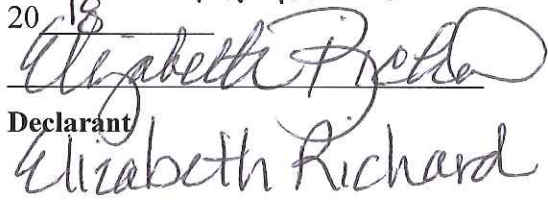 20 18
Elizabeth Richard
Declarant
Elizabeth Richard